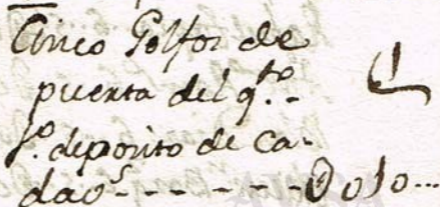 Cinco Golfos de
puerta del q.to
s.o deposito de ca-
daos - - - - - - 0 0 10...